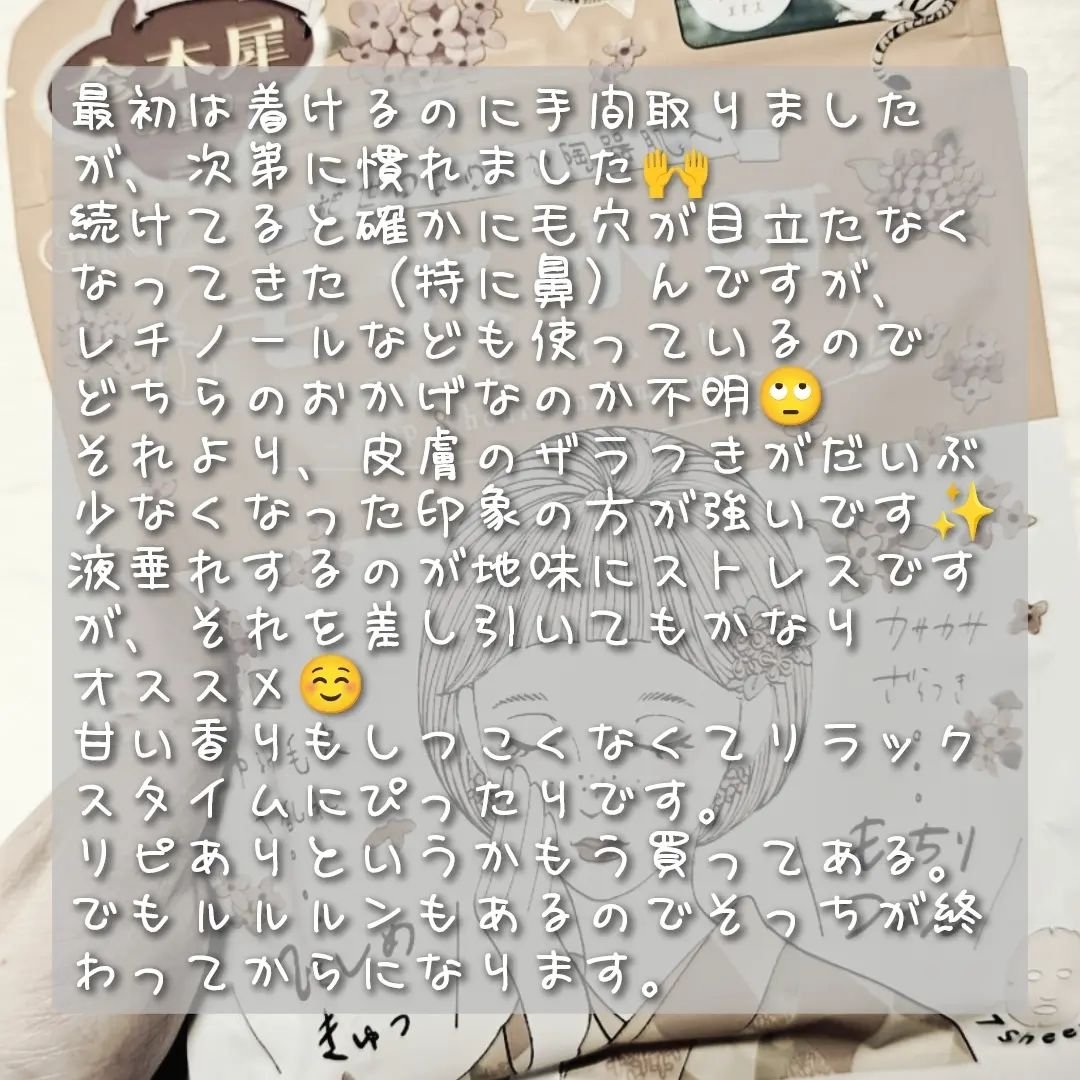 金木犀
最初は着けるのに手間取りました
が、次第に慣れました🙌
続けてると確かに毛穴が目立たなく
なってきた（特に鼻）んですが、
レチノールなども使っているので
どちらのおかげなのか不明🙄
それより、皮膚のザラつきがだいぶ
少なくなった印象の方が強いです✨
液垂れするのが地味にストレスです
が、それを差し引いてもかなり
オススメ☺️
甘い香りもしつこくなくてリラック
スタイムにぴったりです。
リピありというかもう買ってある。
でもルルルンもあるのでそっちが終
わってからになります。
カサカサ
ざらつき
もっちり
きゅっ